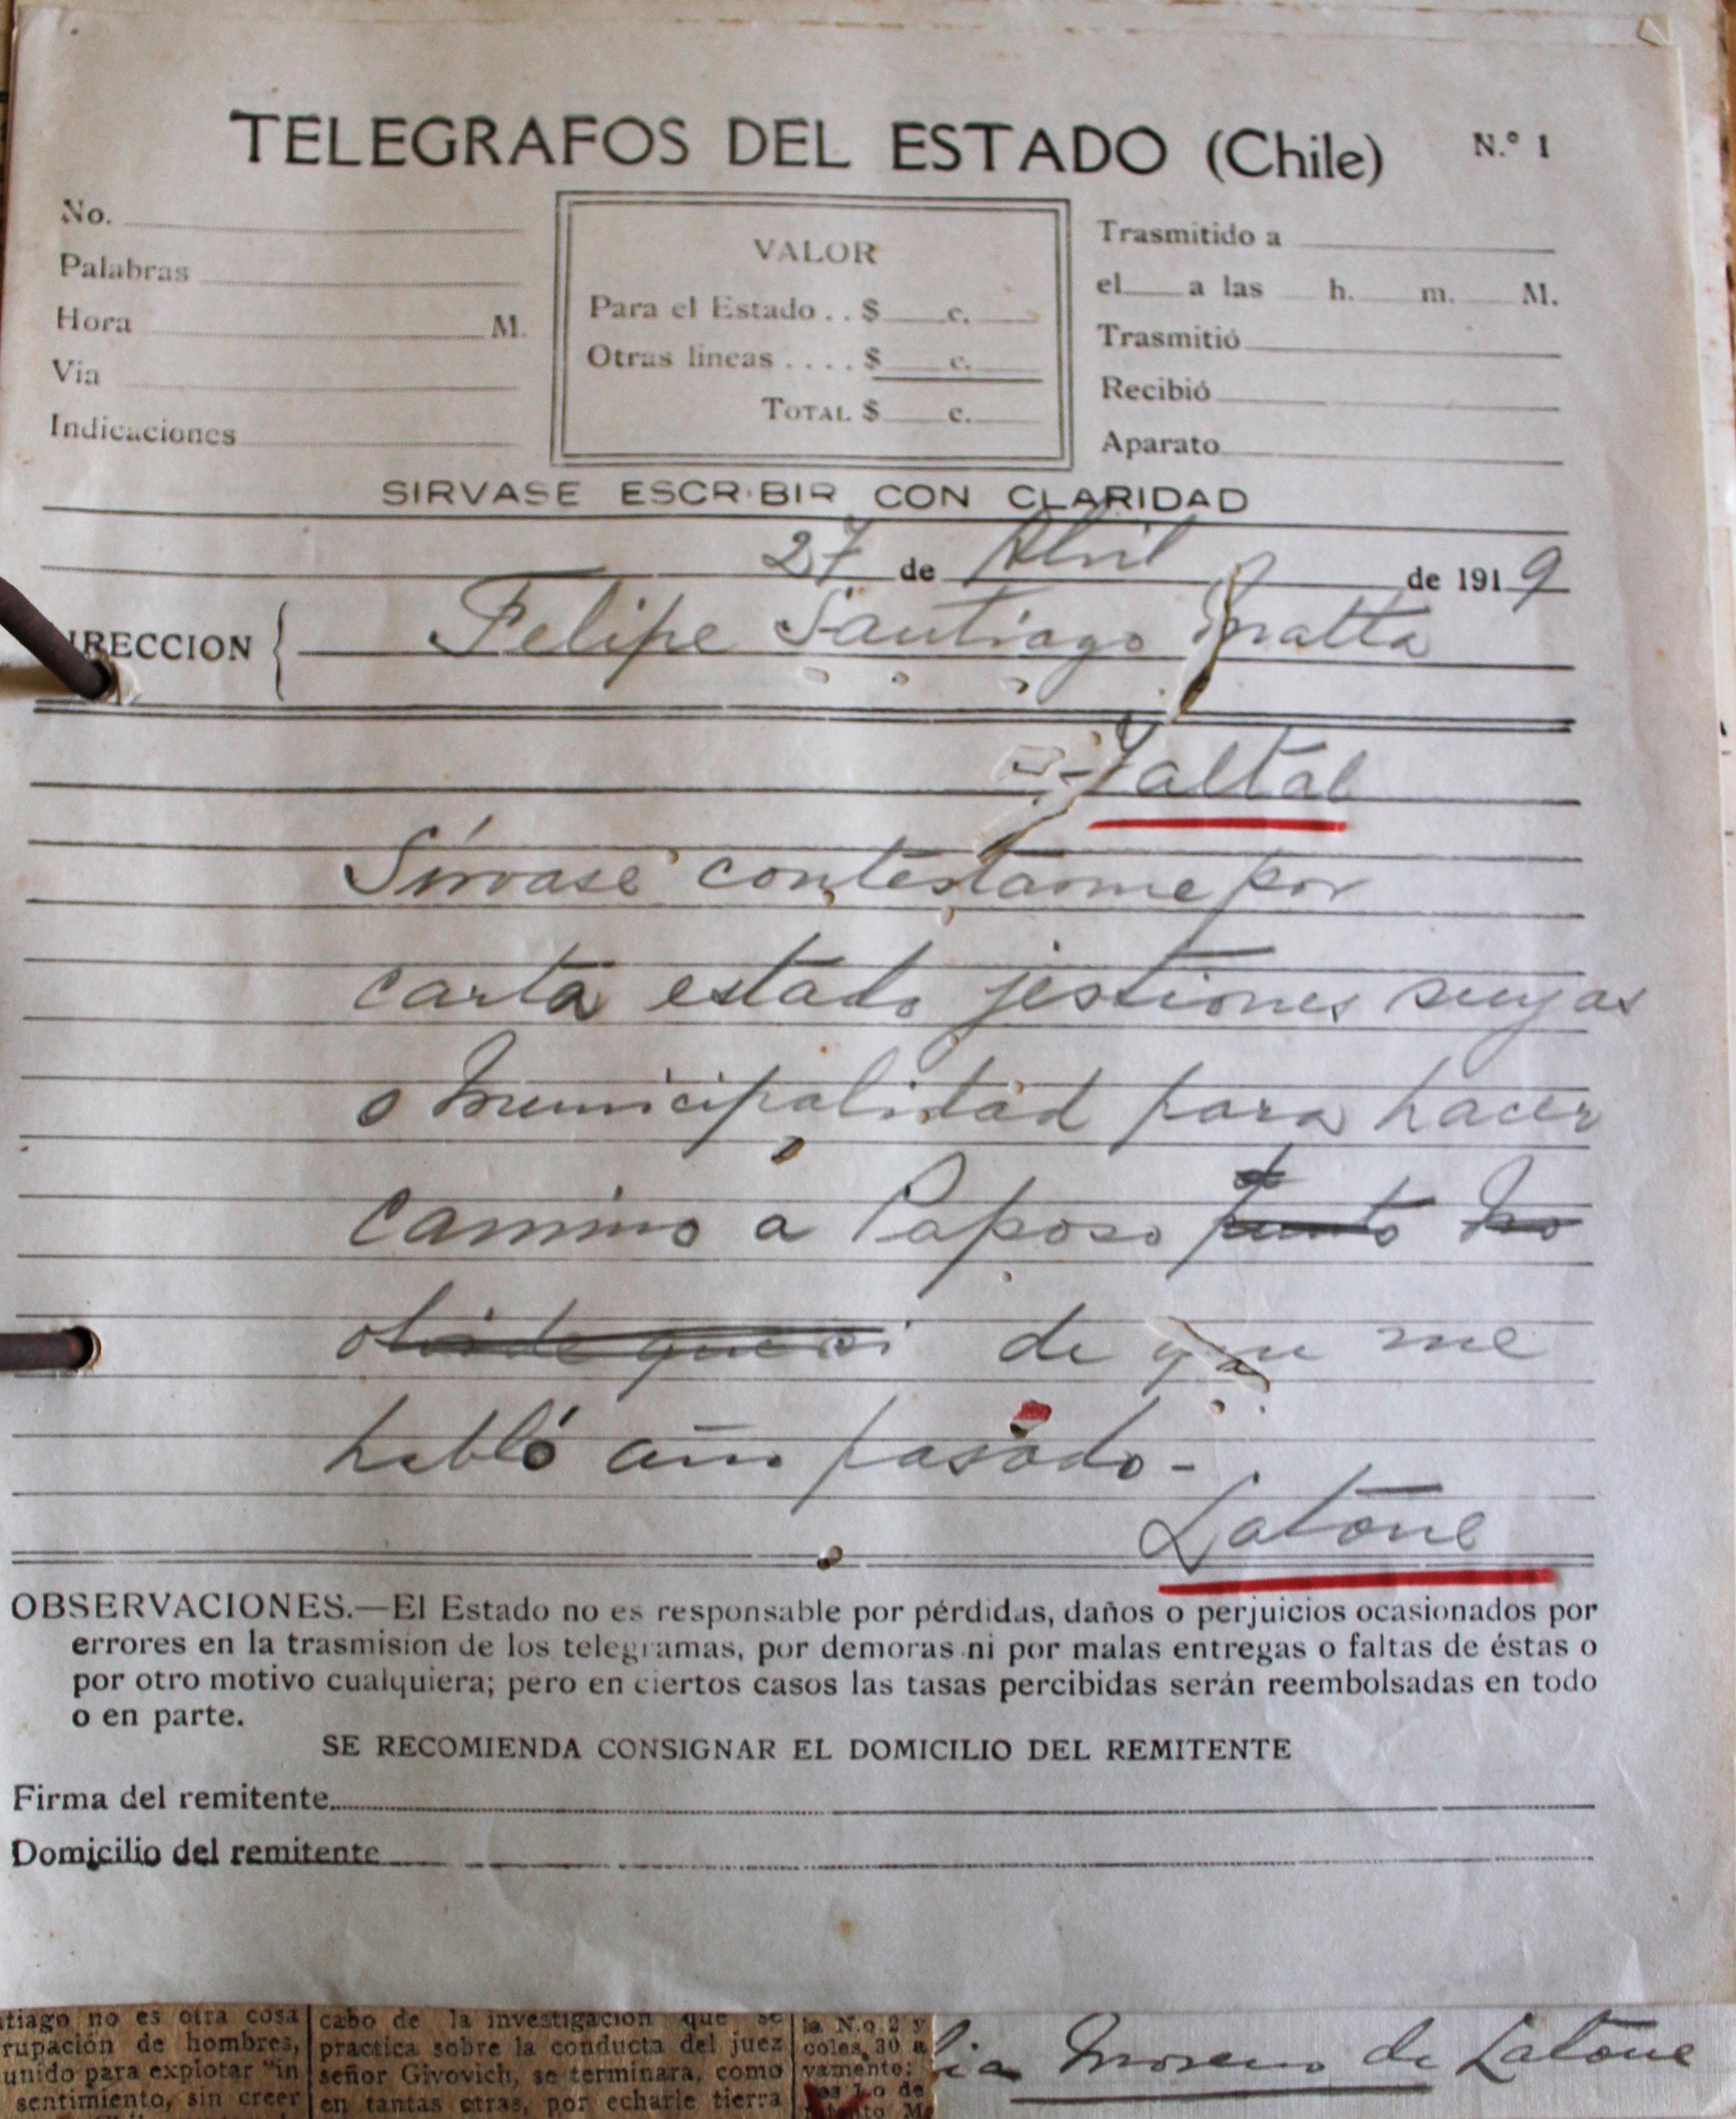 TELEGRAFOS DEL ESTADO (Chile) N.° 1
No.
Palabras
Hora M.
Via
Indicaciones
VALOR
Para el Estado . . $ c.
Otras lineas . . . . $ c.
TOTAL $ c.
Trasmitido a
el a las h. m. M.
Trasmitió
Recibió
Aparato
SIRVASE ESCRIBIR CON CLARIDAD
27 de Abril de 1919
IRECCION { Felipe Santiago Matta
Taltal
Sírvase contestarme por
carta estado jestiones suyas
o Municipalidad para hacer
camino a Paposo punto No
olvide que si de que me
habló año pasado-
Latorre
OBSERVACIONES.—El Estado no es responsable por pérdidas, daños o perjuicios ocasionados por
errores en la trasmision de los telegramas, por demoras ni por malas entregas o faltas de éstas o
por otro motivo cualquiera; pero en ciertos casos las tasas percibidas serán reembolsadas en todo
o en parte.
SE RECOMIENDA CONSIGNAR EL DOMICILIO DEL REMITENTE
Firma del remitente
Domicilio del remitente
tiago no es otra cosa
rupación de hombres,
unido para explotar "in
sentimiento, sin creer
cabo de la investigacion que se
practica sobre la conducta del juez
señor Givovich, se terminara, como
en tantas otras, por echarle tierra
la N.o 2 y
coles, 30 a
vamente;
lia Moreno de Latorre